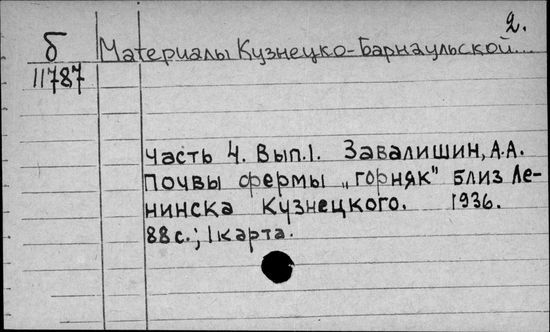 2.
б Материалы Кузнецко-Барнаульской...
11787
Часть 4. Вып.1. Завалишин, А.А.
Почвы фермы „Горняк" близ Ле-
нинска Кузнецкого. 1936.
88 с.; 1 карта.